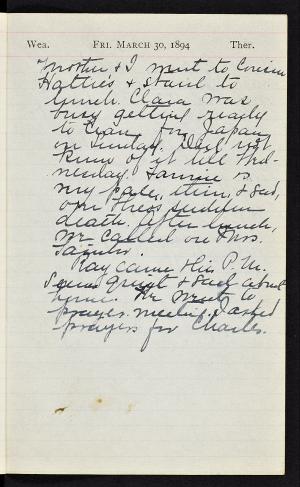 Wea. FRI. MARCH 30, 1894 Ther.
Mother & I went to Cousin
Hattie's & staid to
lunch. Clara was
busy getting ready
to leave for Japan
on Sunday. Did not
know of it till Wed-
nesday. Fannie is
very pale, thin, & sad,
over Theo's sudden
death. After lunch,
we called on Mrs.
Ray came this P.M.
& said about
home. We went to
prayer-meeting. I asked
prayers for Charles.